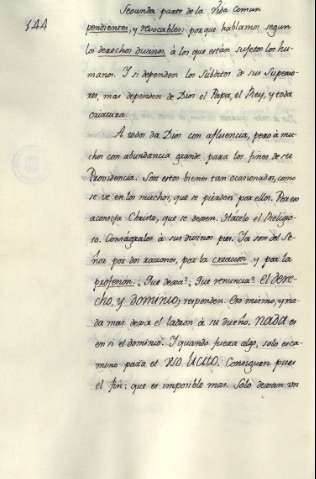 144
Segunda parte de la Vida comun
pendientes, y revocables; porque hablamos segun
los derechos divinos, à los que estàn sujetos los hu-
manos. Y si dependen los Subditos de sus Superio-
res, mas dependen de Dios el Papa, el Rey, y toda
criatura.
A todo da Dios con afluencia, pero à mu-
chos con abundancia grande para los fines de su
Providencia. Son estos bienes tan ocasionados, como
se ve en los muchos, que se pierden por ellos. Por eso
aconseja Christo, que se dexen. Hacelo el Religio-
so. Consagralos à sus divinos pies. Ya son del Se-
ñor por dos razones, por la creacion y por la
profesion. Que dexa? Que renuncia? El dere-
cho, y dominio, responden. Eso mismo, y na-
da mas dexa el ladron à su dueño. Nada es
en si el dominio. Y quando fuera algo, solo es ca-
mino para el
Consiguen pues
el fin; que es imposible mas. Solo dexan un